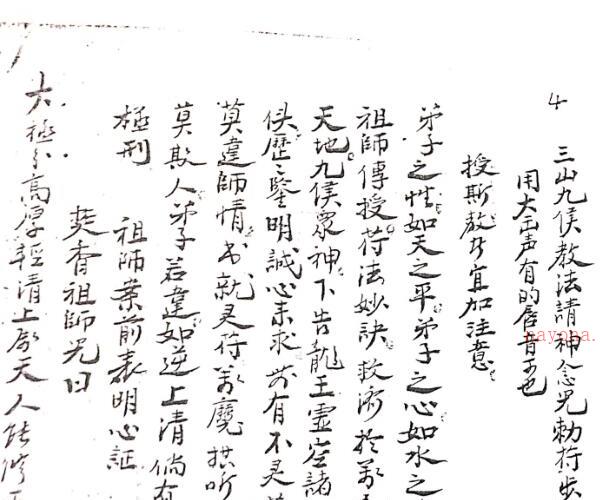 4 三山九侯教法請神念咒勅符
用大声有的
授斯教者宜加注意
弟子之性如天之平弟子之心如水之
祖師傳授荷法妙訣救濟於萬
天地九侯眾神下告龍王虛空諸
侯歷歷鑒明誠心来求若有不灵
莫違師情書就灵符萬魔拱听
莫欺人弟子若違如逆上清倘有
極刑 祖師案前表明心証
焚香祖師咒曰
高厚輕清上應天人能修
nayona.